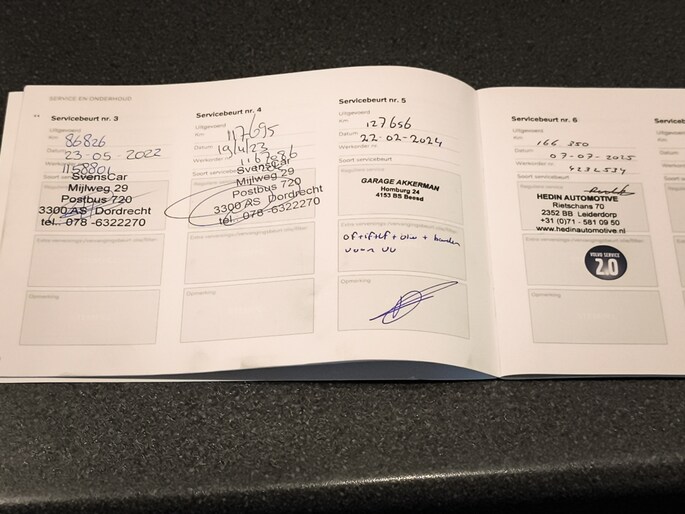 SERVICE EN ONDERHOUD
Servicebeurt nr. 3
Uitgevoerd
Km 86826
Datum 23-05-2022
Werkorder nr. 1158801
Soort servicebeurt
SvensCar
Mijlweg 29
Postbus 720
3300 AS Dordrecht
tel. 078 -6322270
Opmerking
Servicebeurt nr. 4
Uitgevoerd
Km 117695
Datum 19/4/23
Werkorder nr. 1167286
Soort servicebeurt
SvensCar
Mijlweg 29
Postbus 720
3300 AS Dordrecht
tel. 078 -6322270
Opmerking
Servicebeurt nr. 5
Uitgevoerd
Km 127656
Datum 22-02-2024
Werkorder nr.
Soort servicebeurt
GARAGE AKKERMAN
Homburg 24
4153 BS Beesd
Opmerking
Servicebeurt nr. 6
Uitgevoerd
Km 166 350
Datum 07-07-2025
Werkorder nr. 4232539
Soort servicebeurt
HEDIN AUTOMOTIVE
Rietschans 70
2352 BB Leiderdorp
+31 (0)71 - 581 09 50
www.hedinautomotive.nl
VOLVO SERVICE
2.0
Opmerking